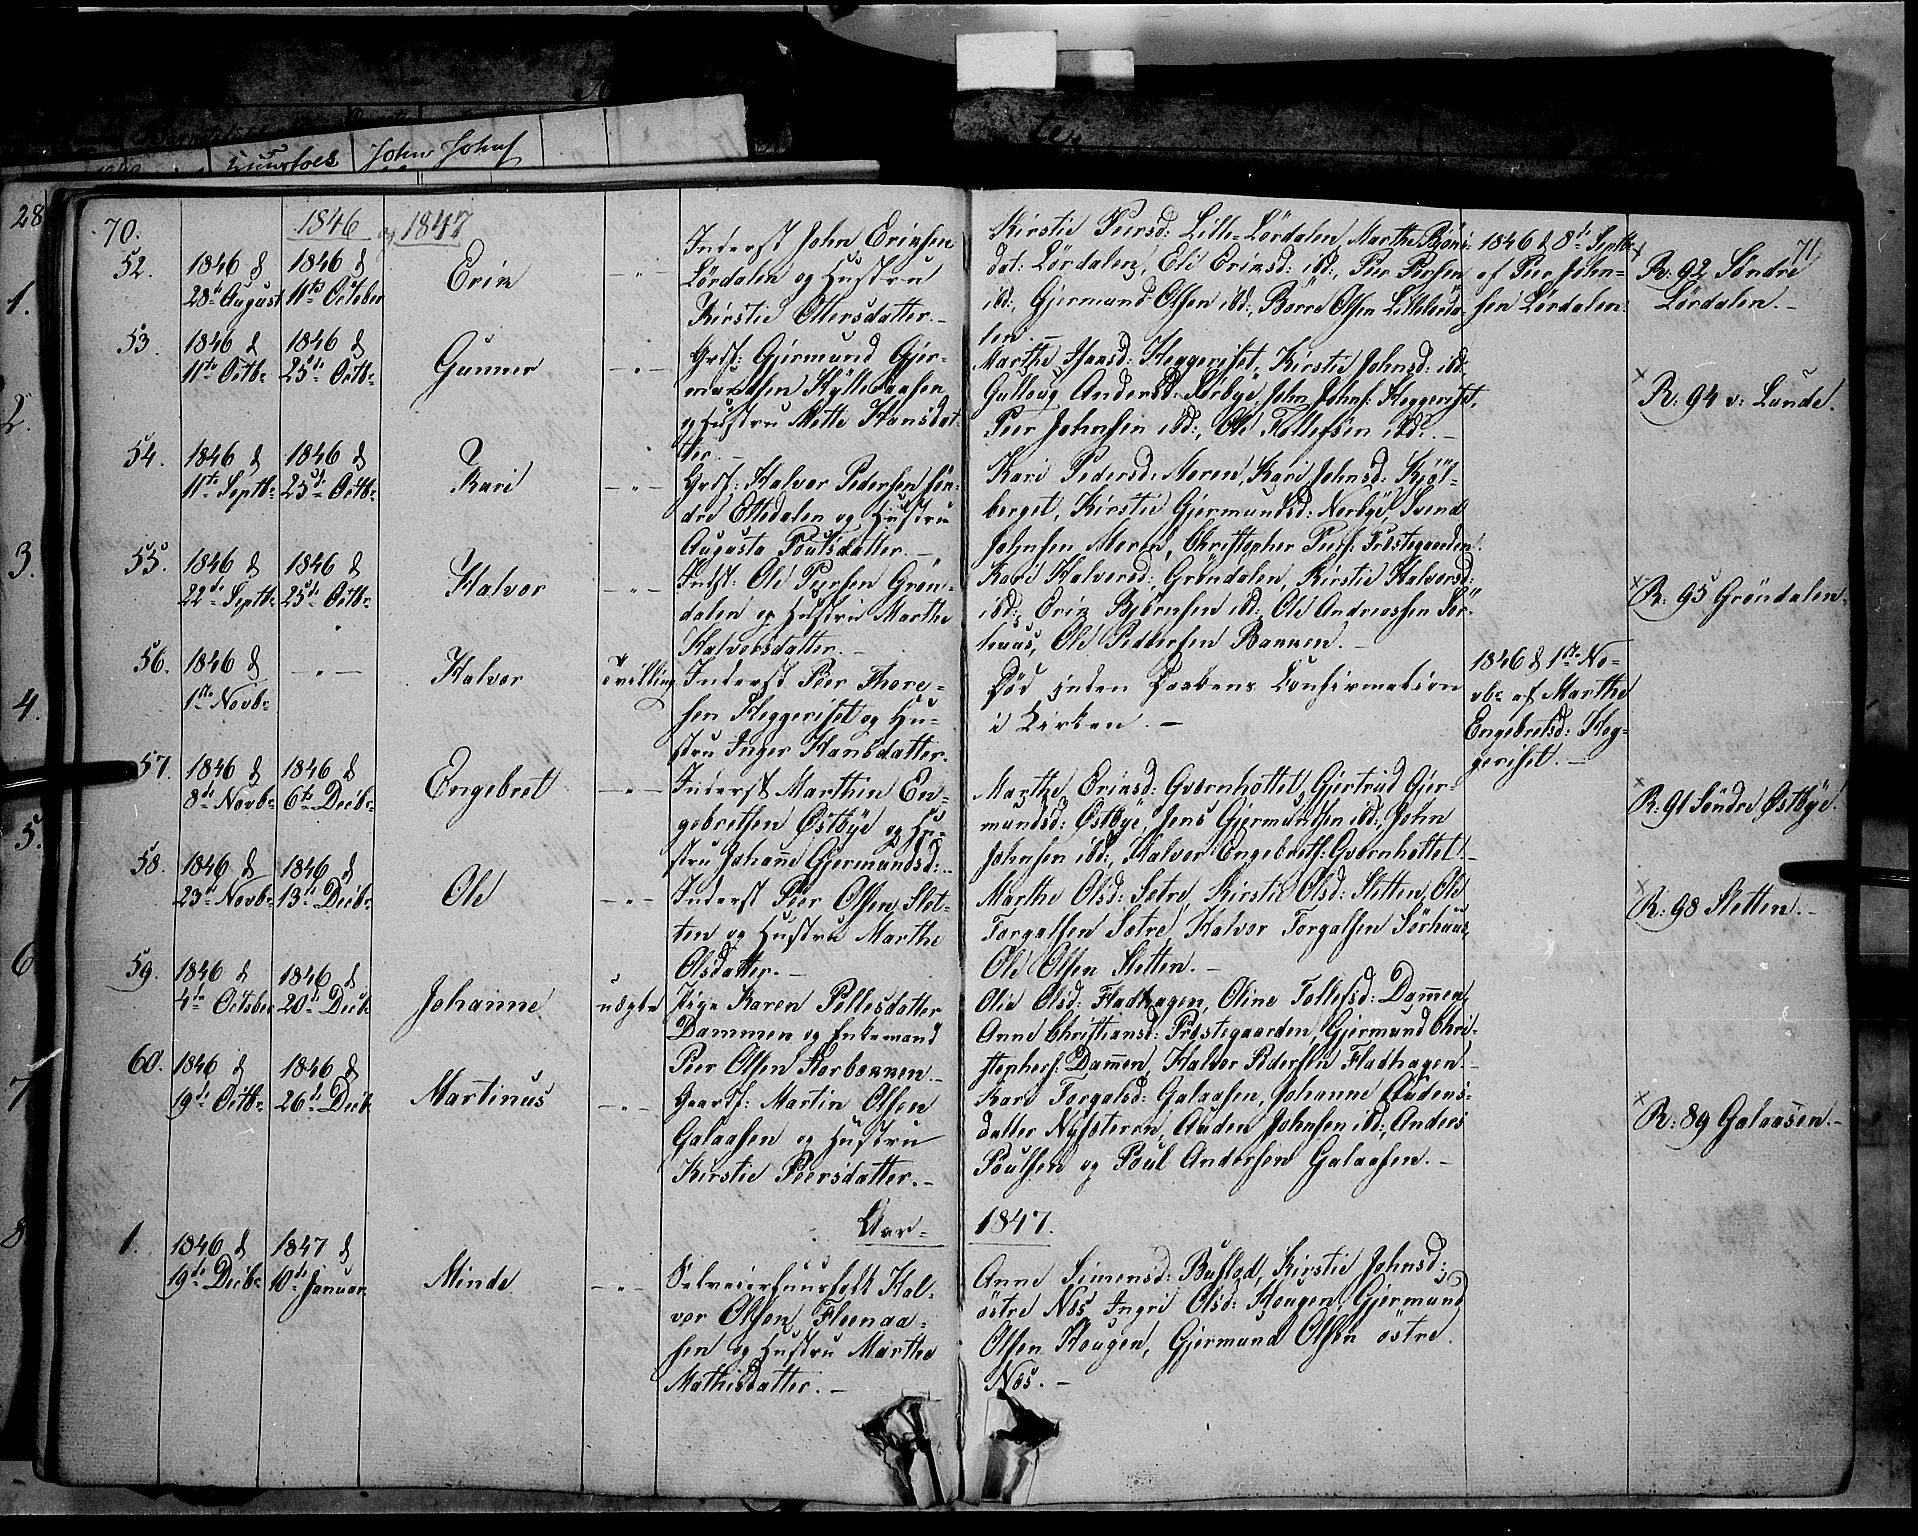 70.
1846 og 1847
71
52.
1846 d
28de August
1846 d
11te October
Erik
Inderst John Eriksen
Lördalen og Hustru
Kirstie Ottersdatter. -
Kirstie Peersd: Lille-Lördalen, Marthe Björns-
dat: Lördalen, Eli Eriksd: ibd:, Peer Persen
ibd:, Gjermund Olsen ibd:, Börre Olsen Lillelörda-
len. -
1846 d 8de Septbr
af Peer John-
sen Lördalen.
R: 92 Söndre
Lördalen. -
53.
1846 d
11te Octbr
1846 d
25de Octbr
Gunner
Grdf: Gjermund Gjer-
mundsen Hylleraasen
og Hustru Mette Hansdat-
ter. -
Marthe Hansd: Heggeriset, Kirstie Johnsd: ibd:
Gulloug Andersd: Sörbye, John Johns: Heggeriset,
Peer Johnsen ibd:, Ole Tollefsen ibd: -
R: 94 v: Lunde.
54.
1846 d
11te Septbr
1846 d
25de Octbr
Kari
Grdf: Halvor Pedersen sön-
dre Elledalen og Hustru
Augusta Poulsdatter. -
Kari Pedersd: Moren, Kari Johnsd: Kjöl-
berget, Kirstie Gjermundsd: Norbye, Svend
Johnsen Moren, Christopher Peers: Præstegaarden.
55.
1846 d
22de Septbr
1846 d
25de Octbr
Halvor
Indst: Ole Persen Grön-
dalen og Hustru Marthe
Halvorsdatter. -
Kari Halvorsd: Gröndalen, Kirstie Halvorsd:
ibd:, Erik Björnsen ibd: Ole Andreassen Sör-
huus, Ole Pedersen Bakken. -
R: 95 Gröndalen. -
56.
1846 d
1ste Novbr
Halvor
Tvilling
Inderst Peer Thore-
sen Heggeriset og Hu-
stru Inger Hansdatter.
Död inden Daabens Confirmation
i Kirken. -
1846 d 1ste No-
vbr af Marthe
Engebretsd: Heg-
geriset. -
57.
1846 d
8de Novbr
1846 d
6te Decbr
Engebret
Inderst Marthin En-
gebretsen Østbye og Hu-
stru Johanne Gjermundsd: -
Marthe Eriksd: Gværnholtet, Gjertrud Gjer-
mundsd: Østbye, Jens Gjermundsen ibd:, John
Johnsen ibd:, Halvor Engebrets: Gværnholtet. -
R: 91 Söndre Østbye.
58.
1846 d
23de Novbr
1846 d
13de Decbr
Ole
Inderst Peer Olsen Slet-
ten og Hustru Marthe
Olsdatter. -
Marthe Olsd: Sætre, Kirstie Olsd: Sletten, Ole
Torgalsen Sætre, Halvor Torgalsen Sörhuus,
Ole Olsen Sletten. -
R: 98 Sletten. -
59.
1846 d
4de October
1846 d
20de Decbr
Johanne
uægte
Pige Karen Pellesdatter
Dammen og Enkemand
Peer Olsen Storbakken. -
Olia Olsd: Fladhagen, Oline Tollefsd: Dammen,
Anne Christiansd: Præstegaarden, Gjermund Chri-
stophers: Dammen, Halvor Pedersen Fladhagen. -
60.
1846 d
19de Octbr
1846 d
26de Decbr
Martinus
Gaardf: Martin Olsen
Galaasen og Hustru
Kirstie Peersdatter. -
Kari Torgalsd: Galaasen, Johanne Audens-
datter Nysæteren, Auden Johnsen ibd:, Anders
Poulsen og Poul Andersen Galaasen. -
R: 89 Galaasen. -
Aar- 1847.
1.
1846 d
19de Decbr
1847 d
10de Januar
Minde
Selveierhuusfolk Hal-
vor Olsen Fleenaa-
sen og Hustru Marthe
Mathisdatter. -
Anne Simensd: Bustad, Kirstie Johnsd:
östre Næs Ingri Olsd: Hougen, Gjermund
Olsen Hougen, Gjermund Olsen östre
Næs. -
28
1.
2.
3.
4.
5.
6
7
8
Huusfolk
John Johns
ter